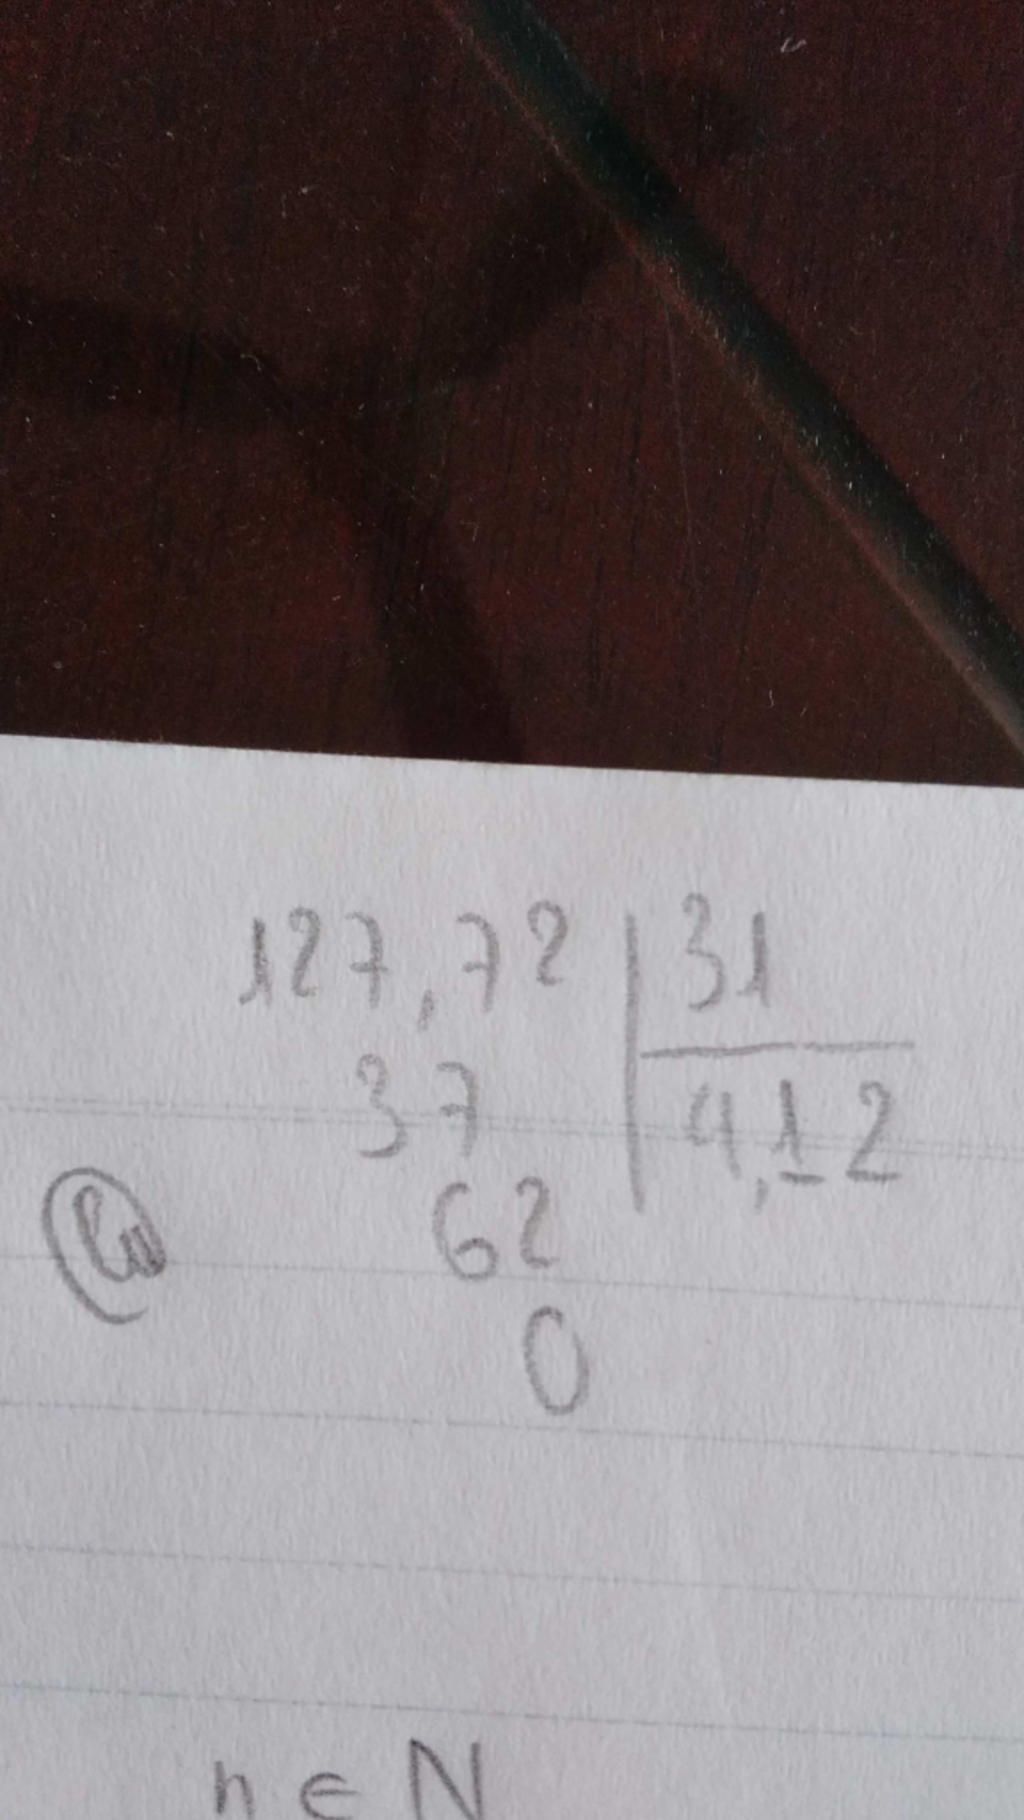 127,72 31
37 4,12
62
0
n ∈ N